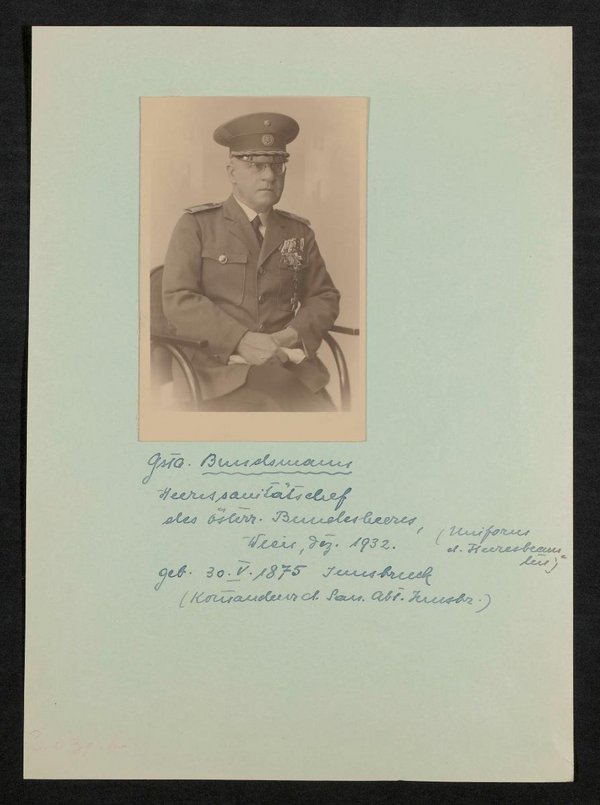 Bundsmann
Heeressanitätschef
des österr. Bundesheeres,
Wien, Dez. 1932.
(Uniform
d. Heeresbeam-
ten)
geb. 30. V. 1875 Innsbruck
(Komandeur d. San. Abt. Innsbr.)